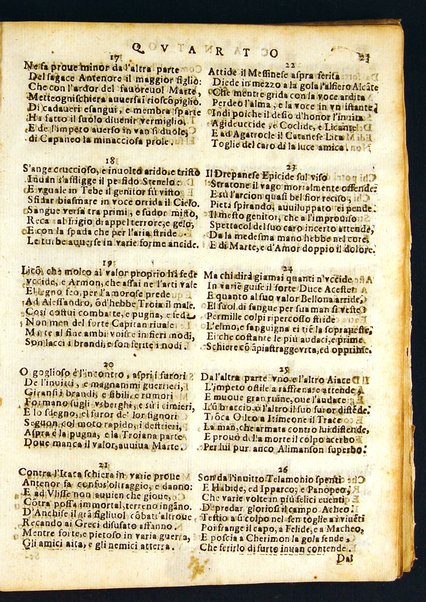 QVARTO
23
17
Ne fa proue minor da l'altra parte
Del sagace Antenore il maggior figlio:
Che con l'ardor del fauoreuol Marte,
Mette ogni schiera auuersa riscō piglio,
Di cadaueri esangui, e membra sparte
Hà fatto il suolo diuenir vermiglio,
E de s'impeto auuerso in van si duole,
di Capaneo la minacciosa prole.
18
S'ange cruccioso, e in uolto arido, e tristo
In uan s'affligge il perfido Stenelo:
E vguale in Tebe il genitor fù visto
Sfidar biasmare in voce orrida il Cielo.
Sangue versa tra primi, e sudor misto,
Reca al frigio drappel terrore, e gelo,
E con la spada che per l'aria stride
Le turbe auuerse in varie forme ancide.
19
Licō, che molto al valor proprio hà fede
vccide, e Armon, che assai ne l'arti vale
El degno feo, per l'amorose prede
Ad Alessandro, od'hebbe Troia il male.
Così costui combatte, e pugna, e cede
Non men del forte Capitan riuale:
Marte ad ambi voi scinse in fieri nodi,
Son lacci i brandi, e son ferite i nodi.
20
O gogliosò è l'incontro, aspri i furori
De l'inuitti, e magnanimi guerrieri,
Giransi i brandi, e sibili, e rumori
Formano su gli vsberghi, e sù i cimieri.
E lo sdegno, el furor de' lor signori
Seguon, col moto rapito, i destrieri,
Aspra è la pugna, e la Troiana parte
Doue manca il valor, auuiua Marte.
21
Contra l'Itaca schiera in varie proue
Antenor fa confusioltraggio, e danno:
E ad Vlisse non auuien che gioue,
Cōtra possa immortal, terreno ingāno.
D'Anchise il grā figliuol cōbatt'altroue
Recando ai Greci disusato affanno.
Mentre forte, e pietoso in varia guerra,
Gli amici aita, e gli nemici atterra.
22
Attide il Messinese aspra ferita
Diede in mezo a la gola al fiero Alcāte
Che mentre grida con la voce ardita
Perdeo l'alma, e la voce in vn istante.
Indi poiche il desio d'honor l'inuita
Agideuccide, e Coclide, e Licante
E ad Agatrocle il Catanese Lita
Toglie del caro dì la luce amica.
23
Il Drepanese Epicide sul viso
Stratone il vago mortalmente offende:
Era l'arcion qual bel fior reciso,
Pietì spirando, auuiluppato ei pende.
Di nostro genitor, che a l'improuiso
Spettacol del suo caro incerto attende,
Da la medesma mano hebbe nel core.
E di Marte, e d'Amor doppio il dolore.
24
Ma chi dirà giamai quanti n'vccide
In varie guise il forte Duce Acestes:
E quanto al suo valor Bellona arride,
El suol di sangue per sua man si veste
Per mille colpi ripercosso stride
L'elmo, e sanguigna ti è la sopraueste,
E che costante le più audaci, e prime,
Schiere cō āpia straggevrita, ed opprime.
25
Da l'altra parte vno, e l'altro Aiace
L'impeto ostile a raffrenare attende,
E muoue gran ruine, oue l'audace
Lubraccio, o l'altro il suo furor distende.
Tròca Oltro a Itimeone il Tracc
La man, che armata contro lui distende,
E prouò de la morte il colpo acerbo
Per lui pur anco Alimanson superbo.
26
Son da l'inuitto Telamonio spenti
E Habide, ed Ipparco, e Panopeo,
Che varie volte più felici euenti
De predar gloriosi il campo Acheo.
Testio a vn colpo nel sen toglie a viuēti
Poi frange il capo, a Felide, e a Macheo,
E poscia a Cherimon la gola fende,
Che ferirlo di furto inuan contende.
Dal